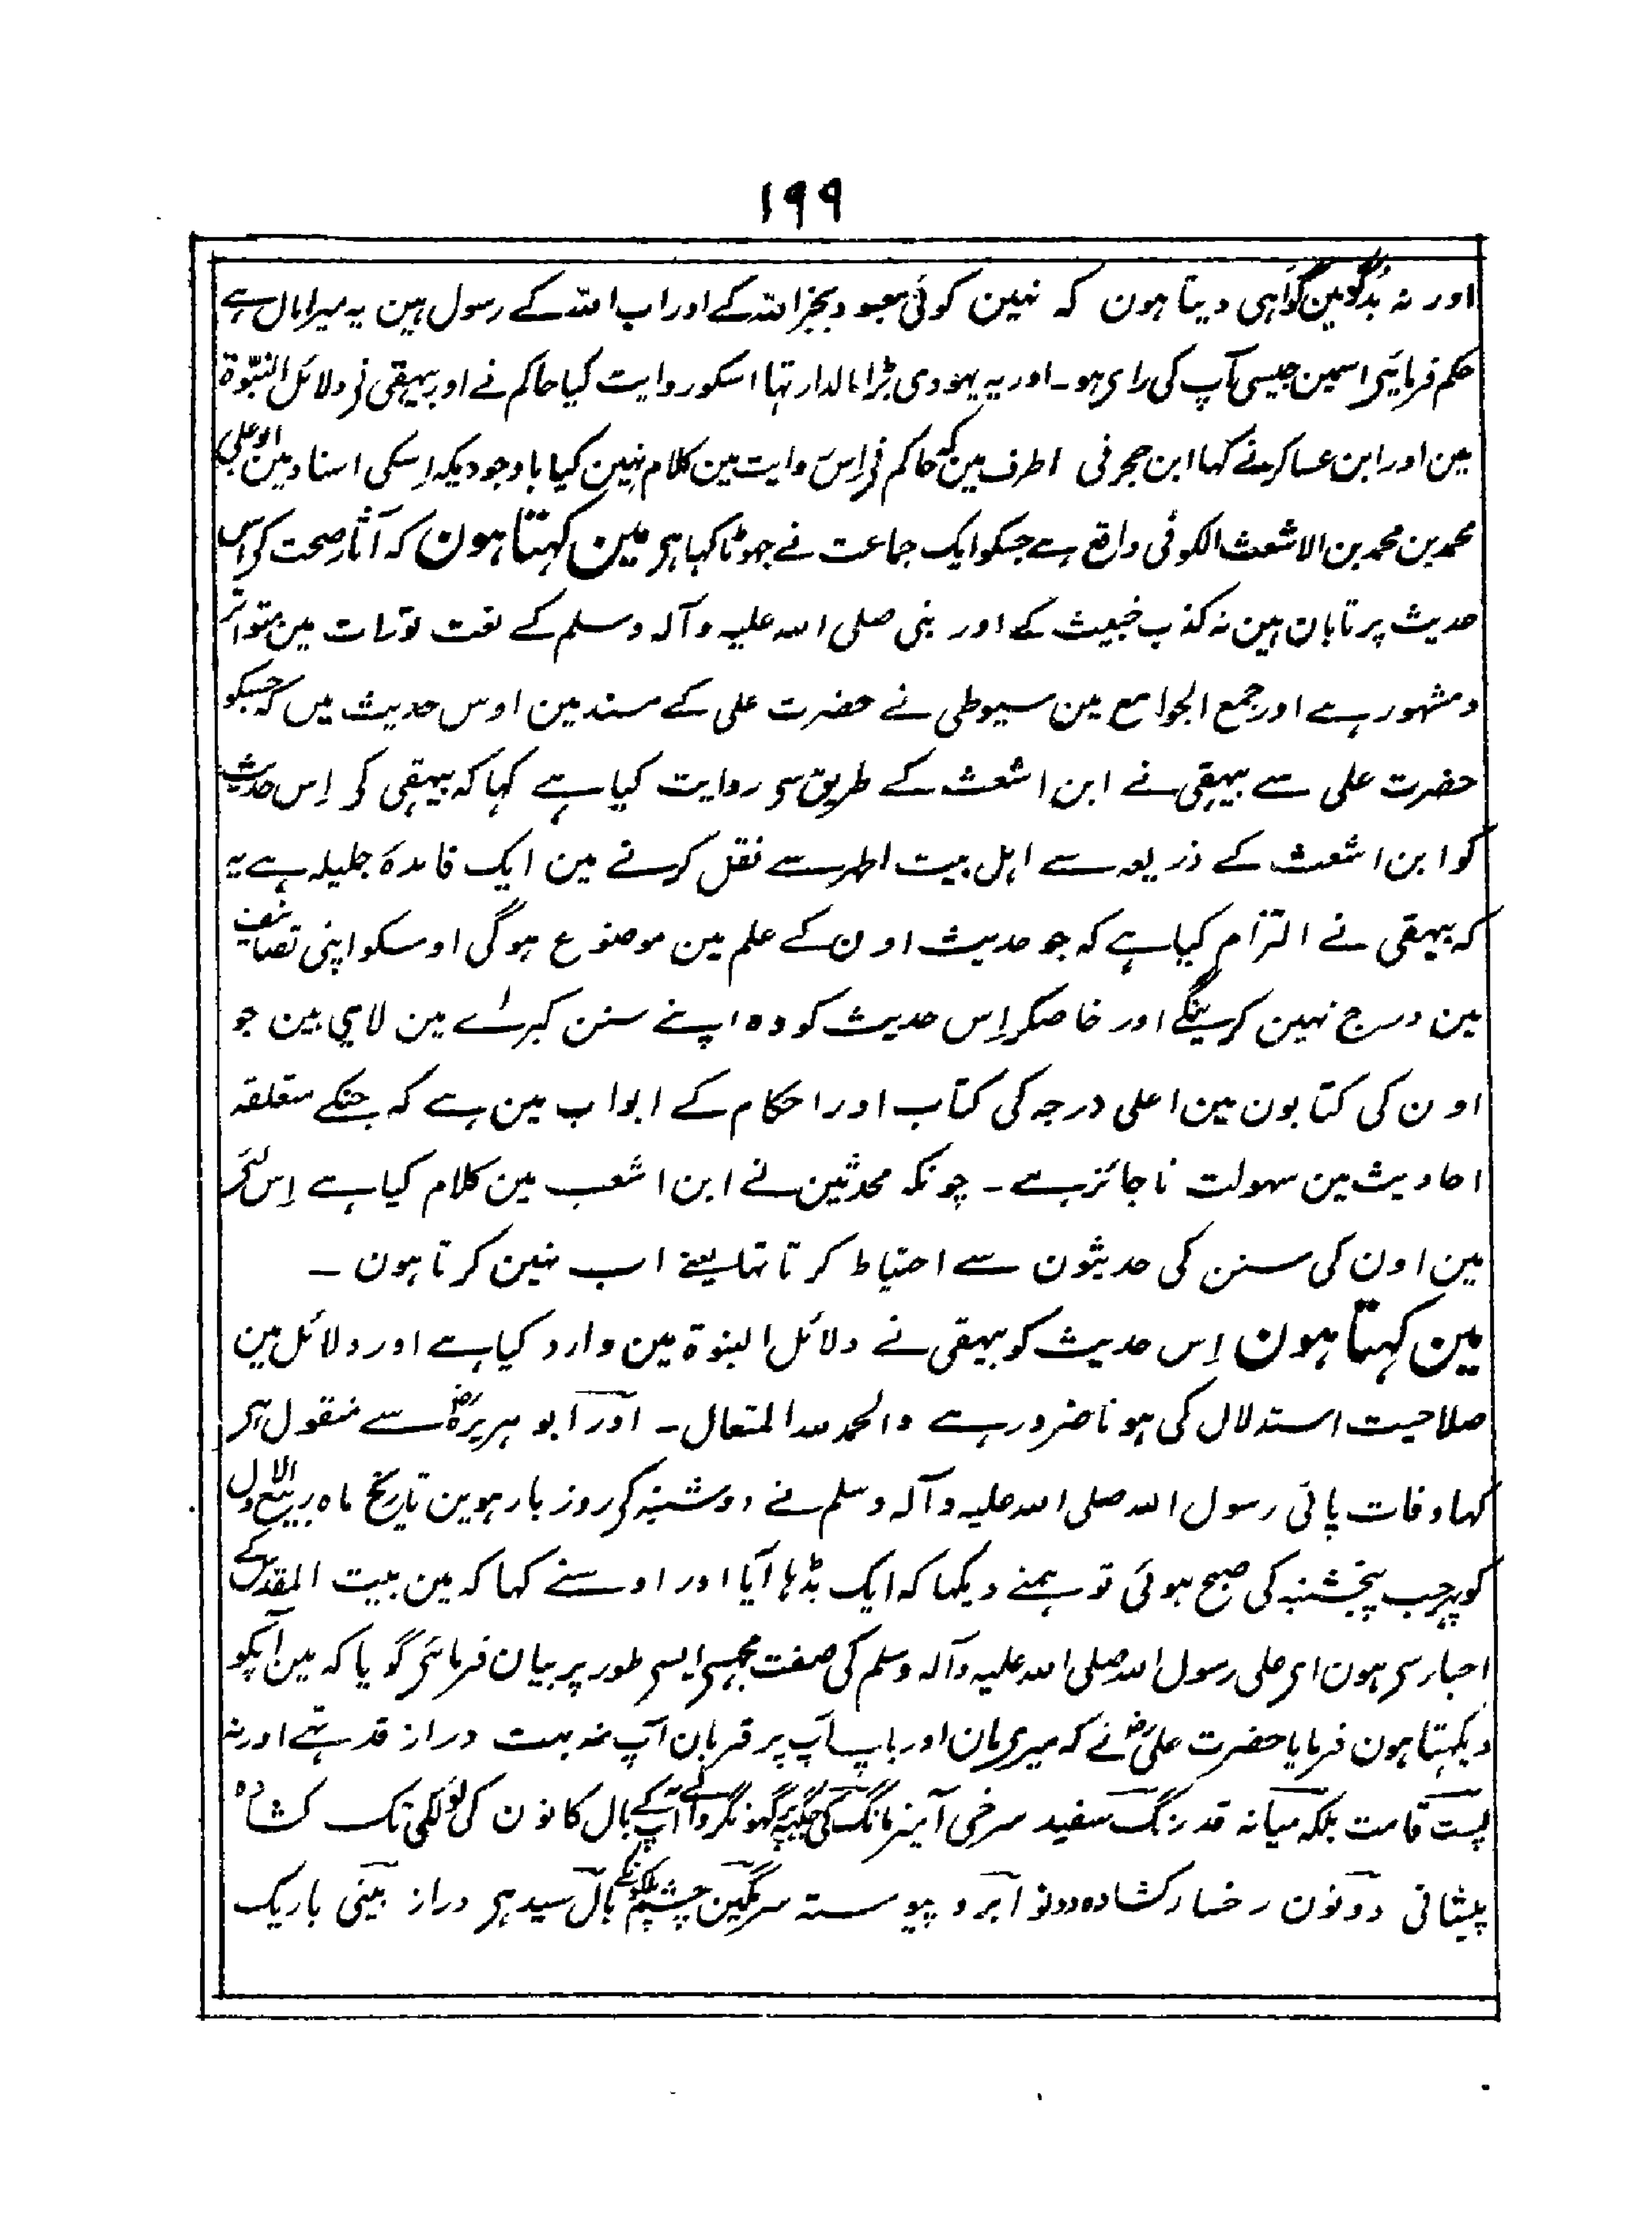 ۱۹۹
اور نہ بدگو مین گواہی دیتا ہون کہ نہین کوئی معبود بجز اللہ کے اور اپ اللہ کے رسول ہین یہ میرا مال ہے
حکم فرمایئی اسمین جیسی آپ کی رای ہو۔ اور یہ یہودی بڑا مالدار تہا اسکو روایت کیا حاکم نے اور بیہقی نی دلائل النبوۃ
مین اور ابن عساکر نے کہا ابن حجر نی اطرف مین کہ حاکم نی اِس روایت مین کلام نہین کیا باوجودیکہ اِسکی اسناد مین ابو علی
محمد بن محمد بن الاشعث الکوفی واقع ہے جسکو ایک جماعت نے جہوٹا کہا ہی مین کہتا ہون کہ آثار صحت کی اس
حدیث پر تابان ہین نہ کذب خبیث کے اور بنی صلی اللہ علیہ وآلہ وسلم کے نعت تورات مین متواتر
و مشہور ہے اور جمع الجوامع مین سیوطی نے حضرت علی کے مسند مین اوس حدیث میں کہ جسکو
حضرت علی سے بیہقی نے ابن اشعث کے طریق سی روایت کیا ہے کہا کہ بیہقی کی اِس حدیث
کو ابن اشعث کے ذریعہ سے اہل بیت اطہر سے نقل کرنے مین ایک فائدہ جلیلہ ہے یہ
کہ بیہقی نے التزام کیا ہے کہ جو حدیث اون کے علم مین موضوع ہوگی اوسکو اپنی تصانیف
مین درج نہین کرینگے اور خاصکر اِس حدیث کو وہ اپنے سنن کبراے مین لایی ہین جو
اون کی کتابون مین اعلی درجہ کی کتاب اور احکام کے ابواب مین ہے کہ جنکے متعلقہ
احادیث مین سہولت ناجائز ہے ۔ چونکہ محدثین نے ابن اشعب مین کلام کیا ہے اِس لئی
مین اون کی سنن کی حدیثون سے احتیاط کرتا تہا یعنے اب نہین کرتا ہون ۔
مین کہتا ہون اِس حدیث کو بیہقی نے دلائل النبوۃ مین وارد کیا ہے اور دلائل مین
صلاحیت استدلال کی ہونا ضرور ہے والحمد للہ المتعال۔ اور ابو ہریرہؓ سے منقول ہی
کہا وفات پائی رسول اللہ صلی اللہ علیہ وآلہ وسلم نے دوشنبہ کی روز بارہوین تاریخ ماہ ربیع الاول
کو پہر جب پنجشنبہ کی صبح ہوئی تو ہمنے دیکہا کہ ایک بڈہا آیا اور اوسنے کہا کہ مین بیت المقدس کے
احبار سی ہون ای علی رسول اللہ صلی اللہ علیہ وآلہ وسلم کی صفت مجہسی ایسی طور پر بیان فرمائی گویا کہ مین آپکو
دیکہتا ہون فرمایا حضرت علیؓ نے کہ میری مان اور باپ آپ پر قربان آپ نہ بہت دراز قد تہے اور نہ
پست قامت بلکہ میانہ قد رنگ سفید سرخی آمیز مانگ کی جگہہ پر گہونگر والے آپ کے بال کانون کی لو لکی تک کشادہ
پیشانی دونون رخسار کشادہ دونو ابرو پیوستہ سرمگین چشم پلکونکے بال سیدہی دراز بینی باریک